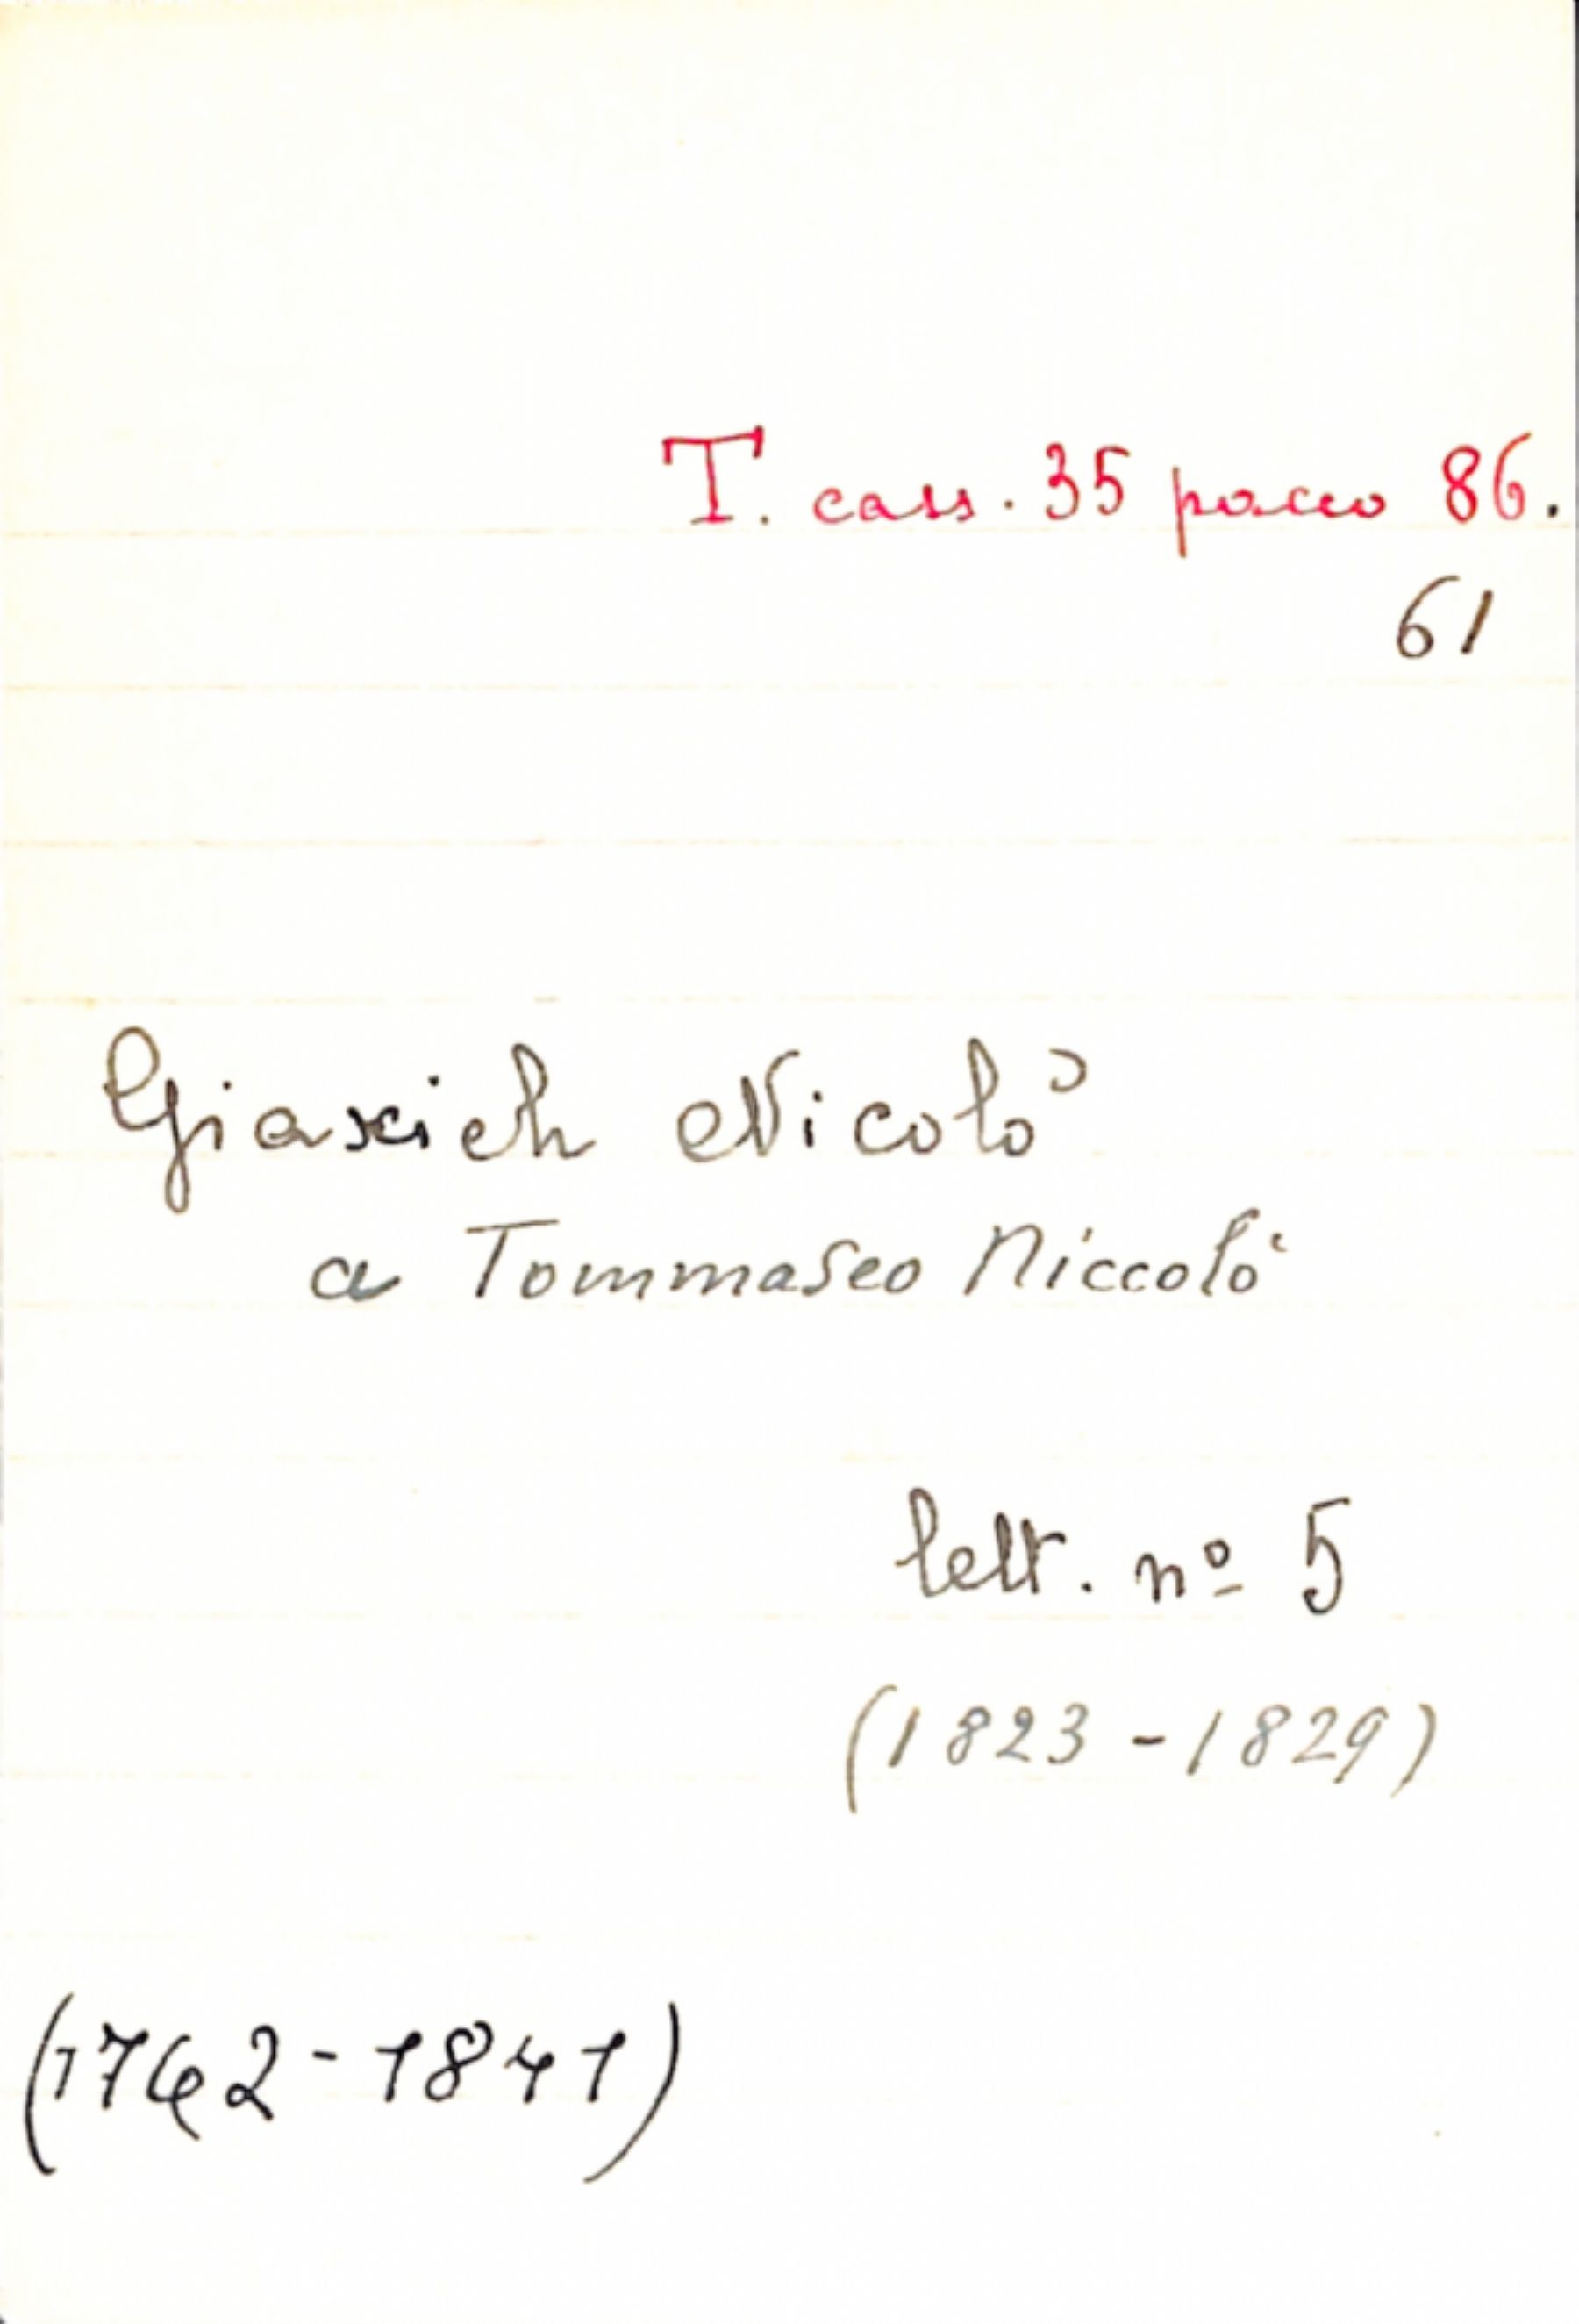 T. cass. 35 pacco 86.
61
Giaxich Nicolò
a Tommaseo Niccolò
lett. nº 5
(1823-1829)
(1762-1841)